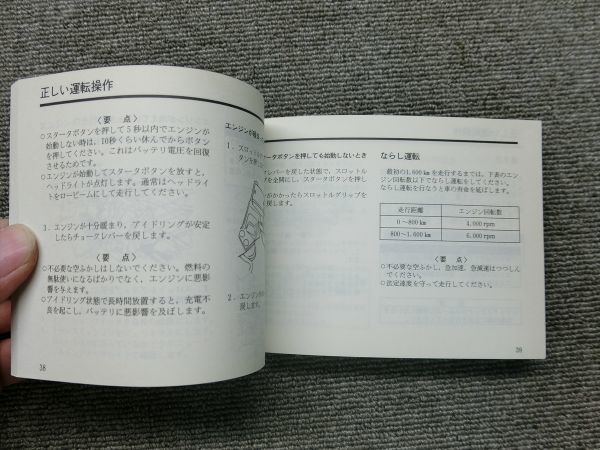 正しい運転操作
〈要 点〉
○スタータボタンを押して5秒以内でエンジンが
始動しない時は、10秒くらい休んでからボタン
を押してください。これはバッテリ電圧を回復
させるためです。
○エンジンが始動してスタータボタンを放すと、
ヘッドライトが点灯します。通常はヘッドライ
トをロービームにして走行してください。
3．エンジンが十分暖まり、アイドリングが安定
したらチョークレバーを戻します。
〈要 点〉
○不必要な空ふかしはしないでください。燃料の
無駄使いになるばかりでなく、エンジンに悪影
響を与えます。
○アイドリング状態で長時間放置すると、充電不
良を起こし、バッテリに悪影響を及ぼします。
38
エンジンが暖
1．スロット
2．エンジン
戻しま
タータボタンを押しても始動しないとき
クレバーを戻した状態で、スロットル
を全開にし、スタータボタンを押し
がかかったらスロットルグリップを
戻します。
ならし運転
最初の1,600㎞を走行するまでは、下表のエン
ジン回転数以下でならし運転をしてください。
ならし運転を行なうと車の寿命を延ばします。
走行距離 エンジン回転数
0～800㎞ 4,000 rpm
800～1,600㎞ 6,000 rpm
〈要 点〉
○不必要な空ふかし、急加速、急減速はつつしん
でください。
○法定速度を守って走行してください。
39